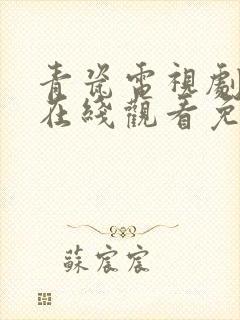 青瓷電視劇
在綫觀看免
蘇宸宸